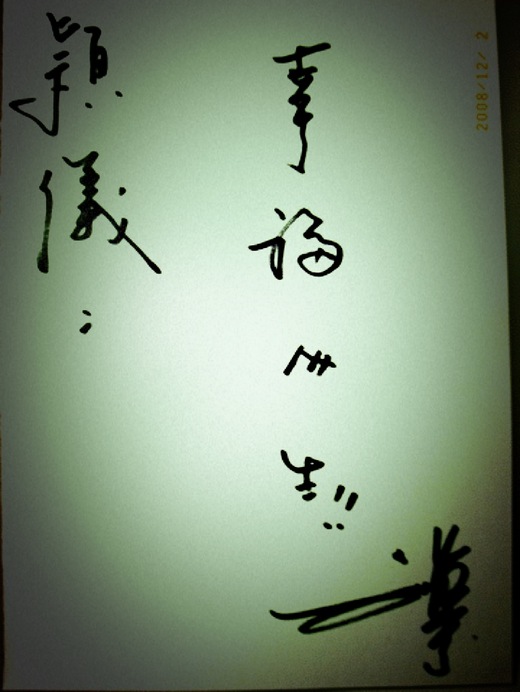 穎儀：
幸福卅生!!
2008/12/ 2